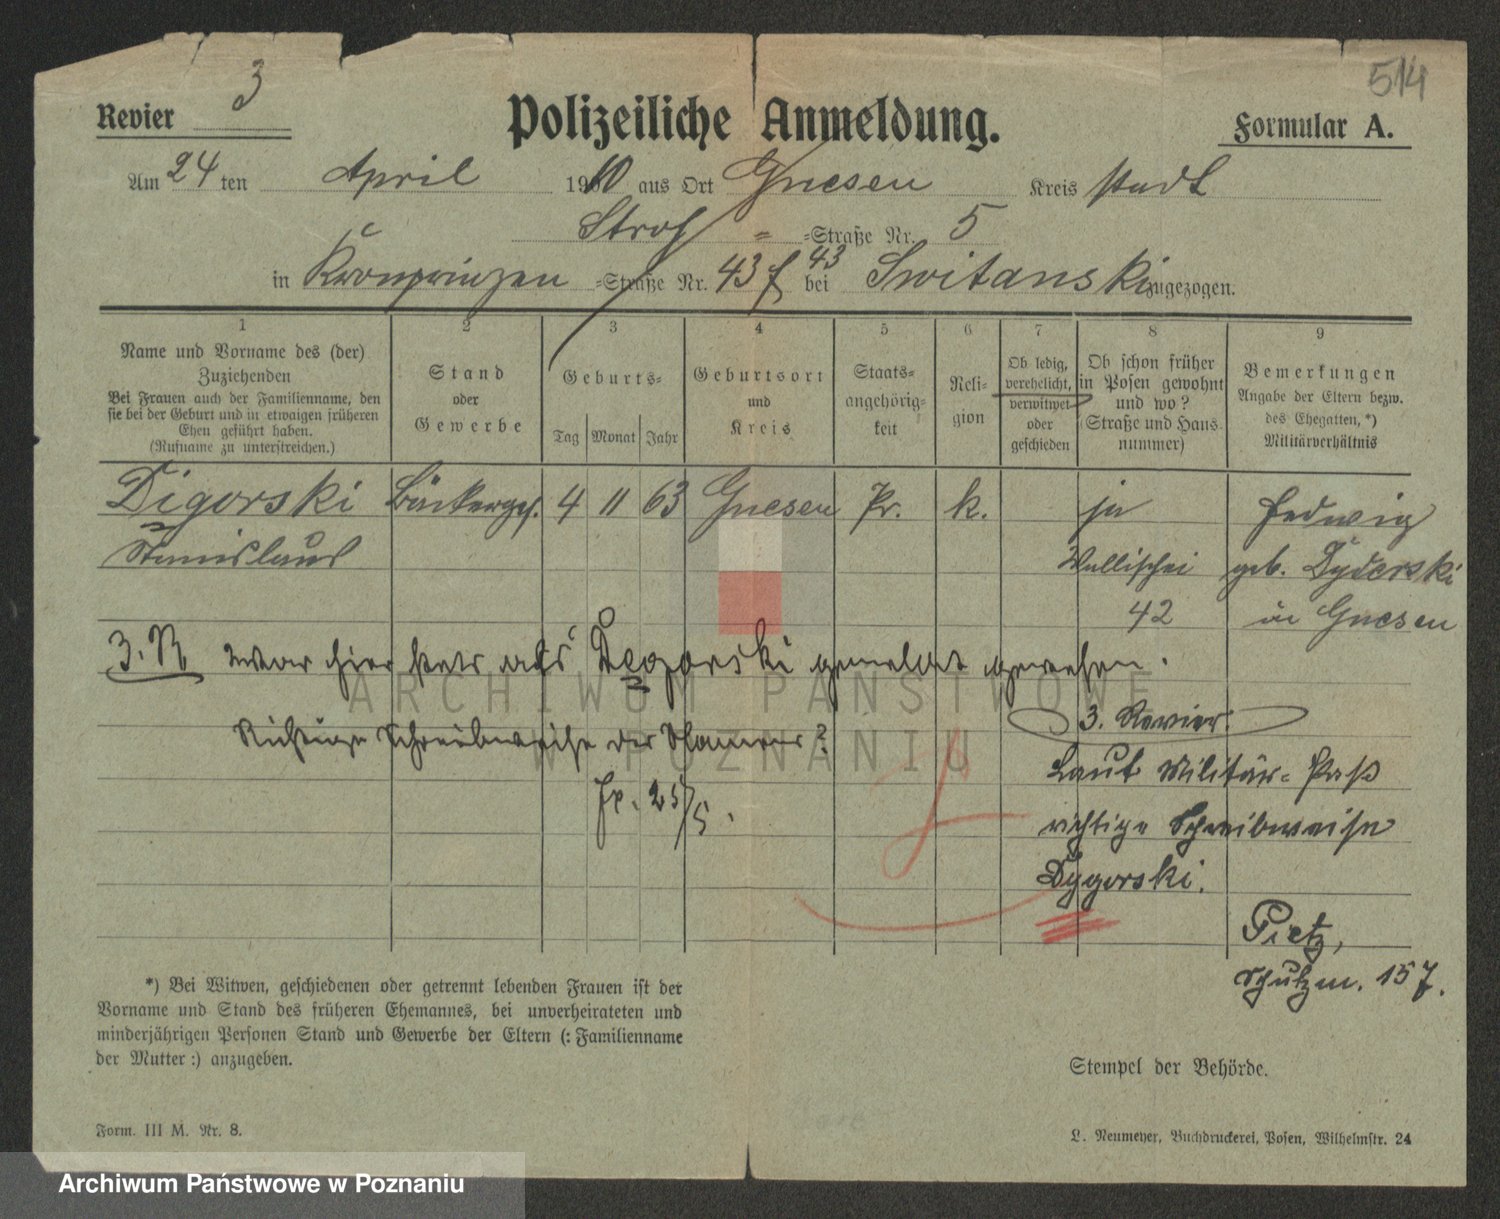 514
Revier 3
Polizeiliche Anmeldung.
Formular A.
Am 24 ten April 1910 aus Ort Gnesen Kreis stadt
Stroh = -Straße Nr. 5
43
in Kronprinzen -Straße Nr. 43 bei Switanski zugezogen.
1 2 3 4 5 6 7 8 9
Name und Vorname des (der)
Zuziehenden
Bei Frauen auch der Familienname, den
sie bei der Geburt und in etwaigen früheren
Ehen geführt haben.
(Rufname zu unterstreichen.)
Stand
oder
Gewerbe
Geburts-
Tag Monat Jahr
Geburtsort
und
Kreis
Staats-
angehörig-
keit
Reli-
gion
Ob ledig,
verehelicht,
verwitwet
oder
geschieden
Ob schon früher
in Posen gewohnt
und wo?
(Straße und Haus-
nummer)
Bemerkungen
Angabe der Eltern bezw.
des Ehegatten, *)
Militärverhältnis
Digorski Bäckerges. 4 11 63 Gnesen Pr. k. ja Hedwig
Stanislaus Wallischei geb. Dyderski
42 in Gnesen
3. R war hier stets als Degorski gemeldet gewesen.
Richtige Schreibweise des Namens?
25/5.
3. Revier.
Laut Militär-Paß
richtige Schreibweise
Dygorski.
Pietz,
Schutzm. 157.
*) Bei Witwen, geschiedenen oder getrennt lebenden Frauen ist der
Vorname und Stand des früheren Ehemannes, bei unverheirateten und
minderjährigen Personen Stand und Gewerbe der Eltern (: Familienname
der Mutter :) anzugeben.
Stempel der Behörde.
Form. III M. Nr. 8.
L. Neumeyer, Buchdruckerei, Posen, Wilhelmstr. 24
ARCHIWUM PAŃSTWOWE
W POZNANIU
Archiwum Państwowe w Poznaniu